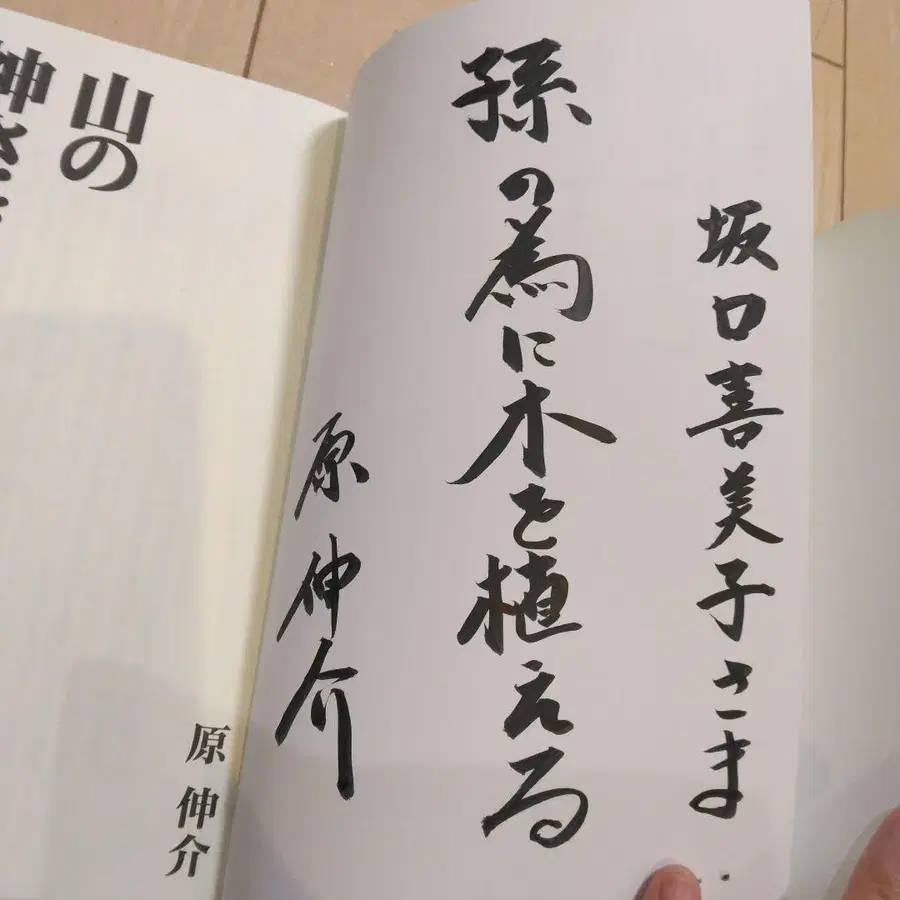 坂口喜美子さま
孫の為に木を植える
原伸介
山の
神さま
原 伸介